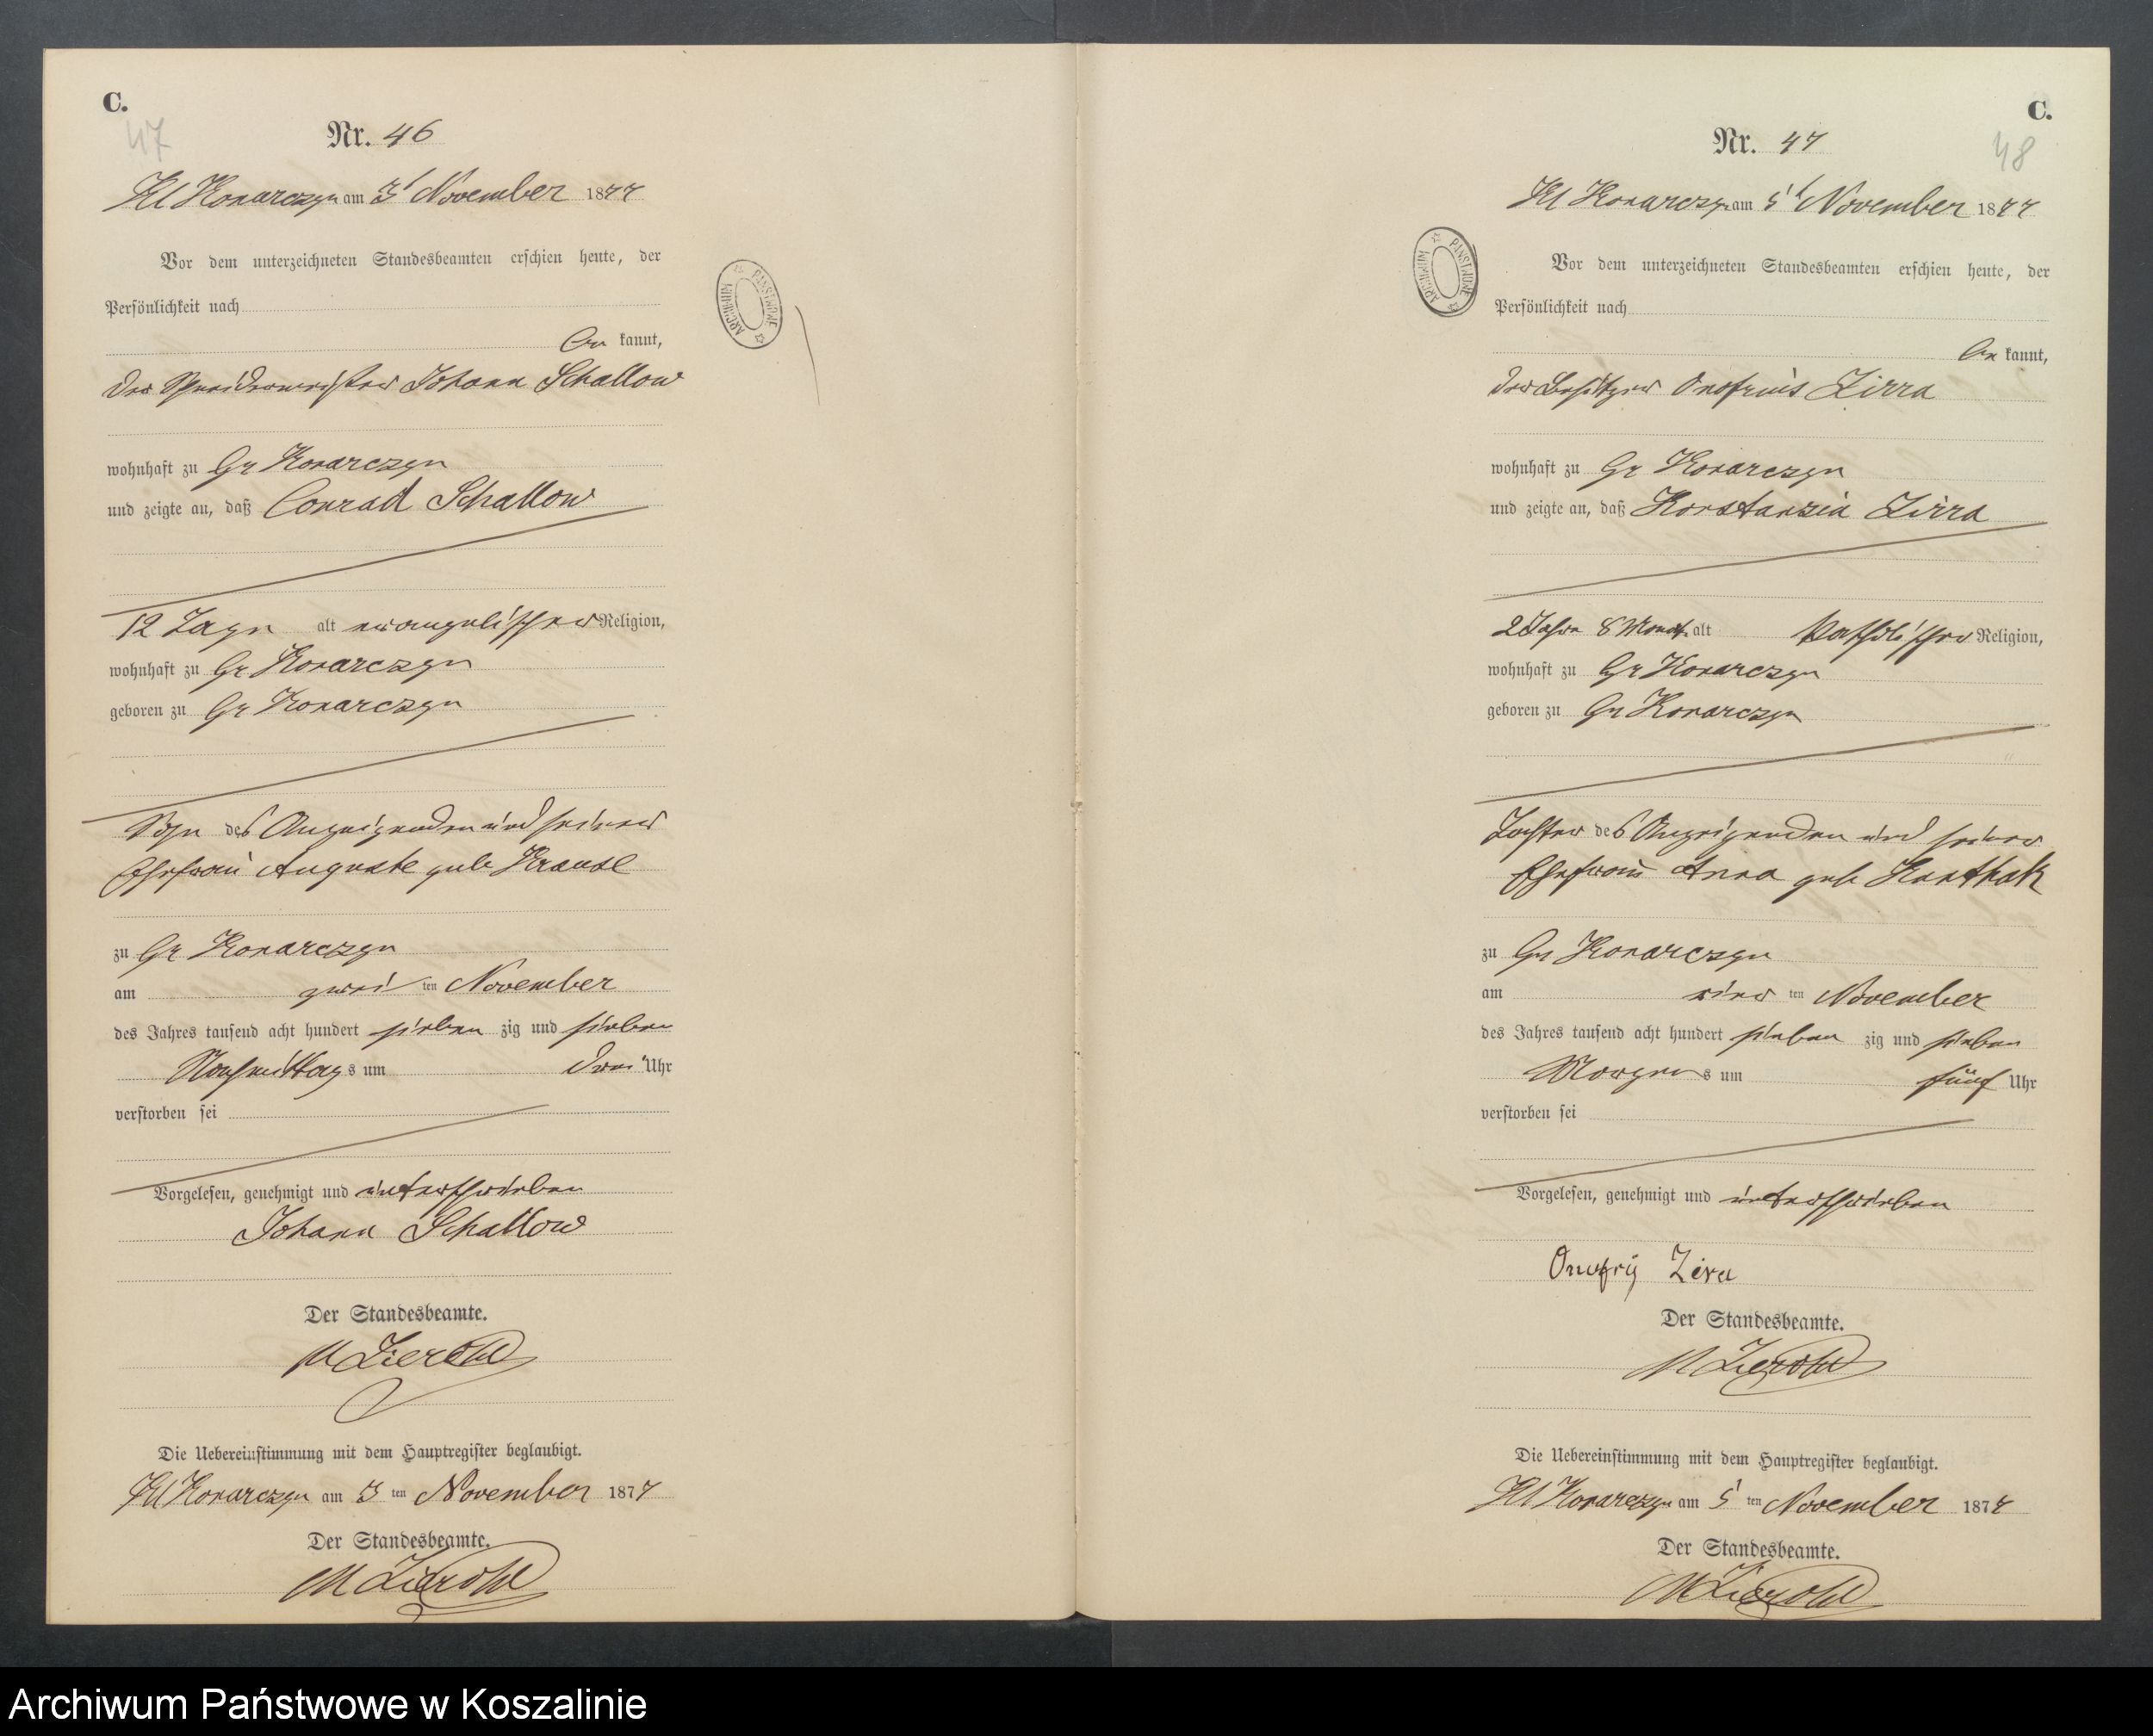 C.
47
Nr. 46
Kl Konarczyn am 3t November 1877
Vor dem unterzeichneten Standesbeamten erschien heute, der
Persönlichkeit nach
be kannt,
der Schneidermeister Johann Schallow
wohnhaft zu Gr Konarczyn
und zeigte an, daß Conrad Schallow
12 Tage alt evangelischer Religion,
wohnhaft zu Gr Konarczyn
geboren zu Gr Konarczyn
Sohn des Anzeigenden und seiner
Ehefrau Auguste geb Krause
zu Gr Konarczyn
am zwei ten November
des Jahres tausend acht hundert sieben zig und sieben
Nachmittags um drei Uhr
verstorben sei
Vorgelesen, genehmigt und unterschrieben
Johann Schallow
Der Standesbeamte.
Die Uebereinstimmung mit dem Hauptregister beglaubigt.
Kl Konarczyn am 3 ten November 1877
Der Standesbeamte.
ARCHIWUM PAŃSTWOWE
C.
48
Nr. 47
Kl Konarczyn am 5t November 1877
Vor dem unterzeichneten Standesbeamten erschien heute, der
Persönlichkeit nach
be kannt,
der Besitzer Onofrius Zirra
wohnhaft zu Gr Konarczyn
und zeigte an, daß Konstanzia Zirra
2 Jahre 8 Monat alt katholischer Religion,
wohnhaft zu Gr Konarczyn
geboren zu Gr Konarczyn
Tochter des Anzeigenden und seiner
Ehefrau Anna geb
zu Gr Konarczyn
am vier ten November
des Jahres tausend acht hundert sieben zig und sieben
Morgens um fünf Uhr
verstorben sei
Vorgelesen, genehmigt und unterschrieben
Onufrij Zira
Der Standesbeamte.
Die Uebereinstimmung mit dem Hauptregister beglaubigt.
Kl Konarczyn am 5 ten November 1877
Der Standesbeamte.
ARCHIWUM PAŃSTWOWE
Archiwum Państwowe w Koszalinie